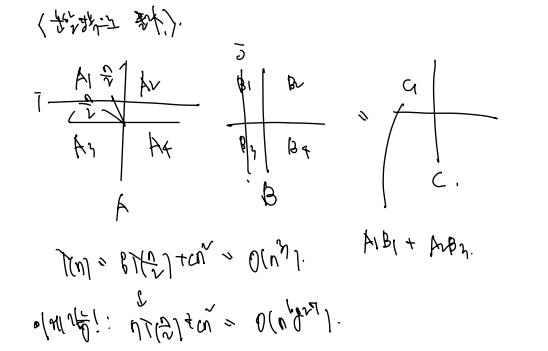 i
A₁ n/2 A₂
n/2
A₃ A₄
A
j
B₁ B₂
B₃ B₄
B
=
C₁
C.
A₁B₁ + A₂B₃.
T(n) = 8T(n/2) + cn² = O(n³).
↓
7T(n/2) + cn² = O(n^log₂7).